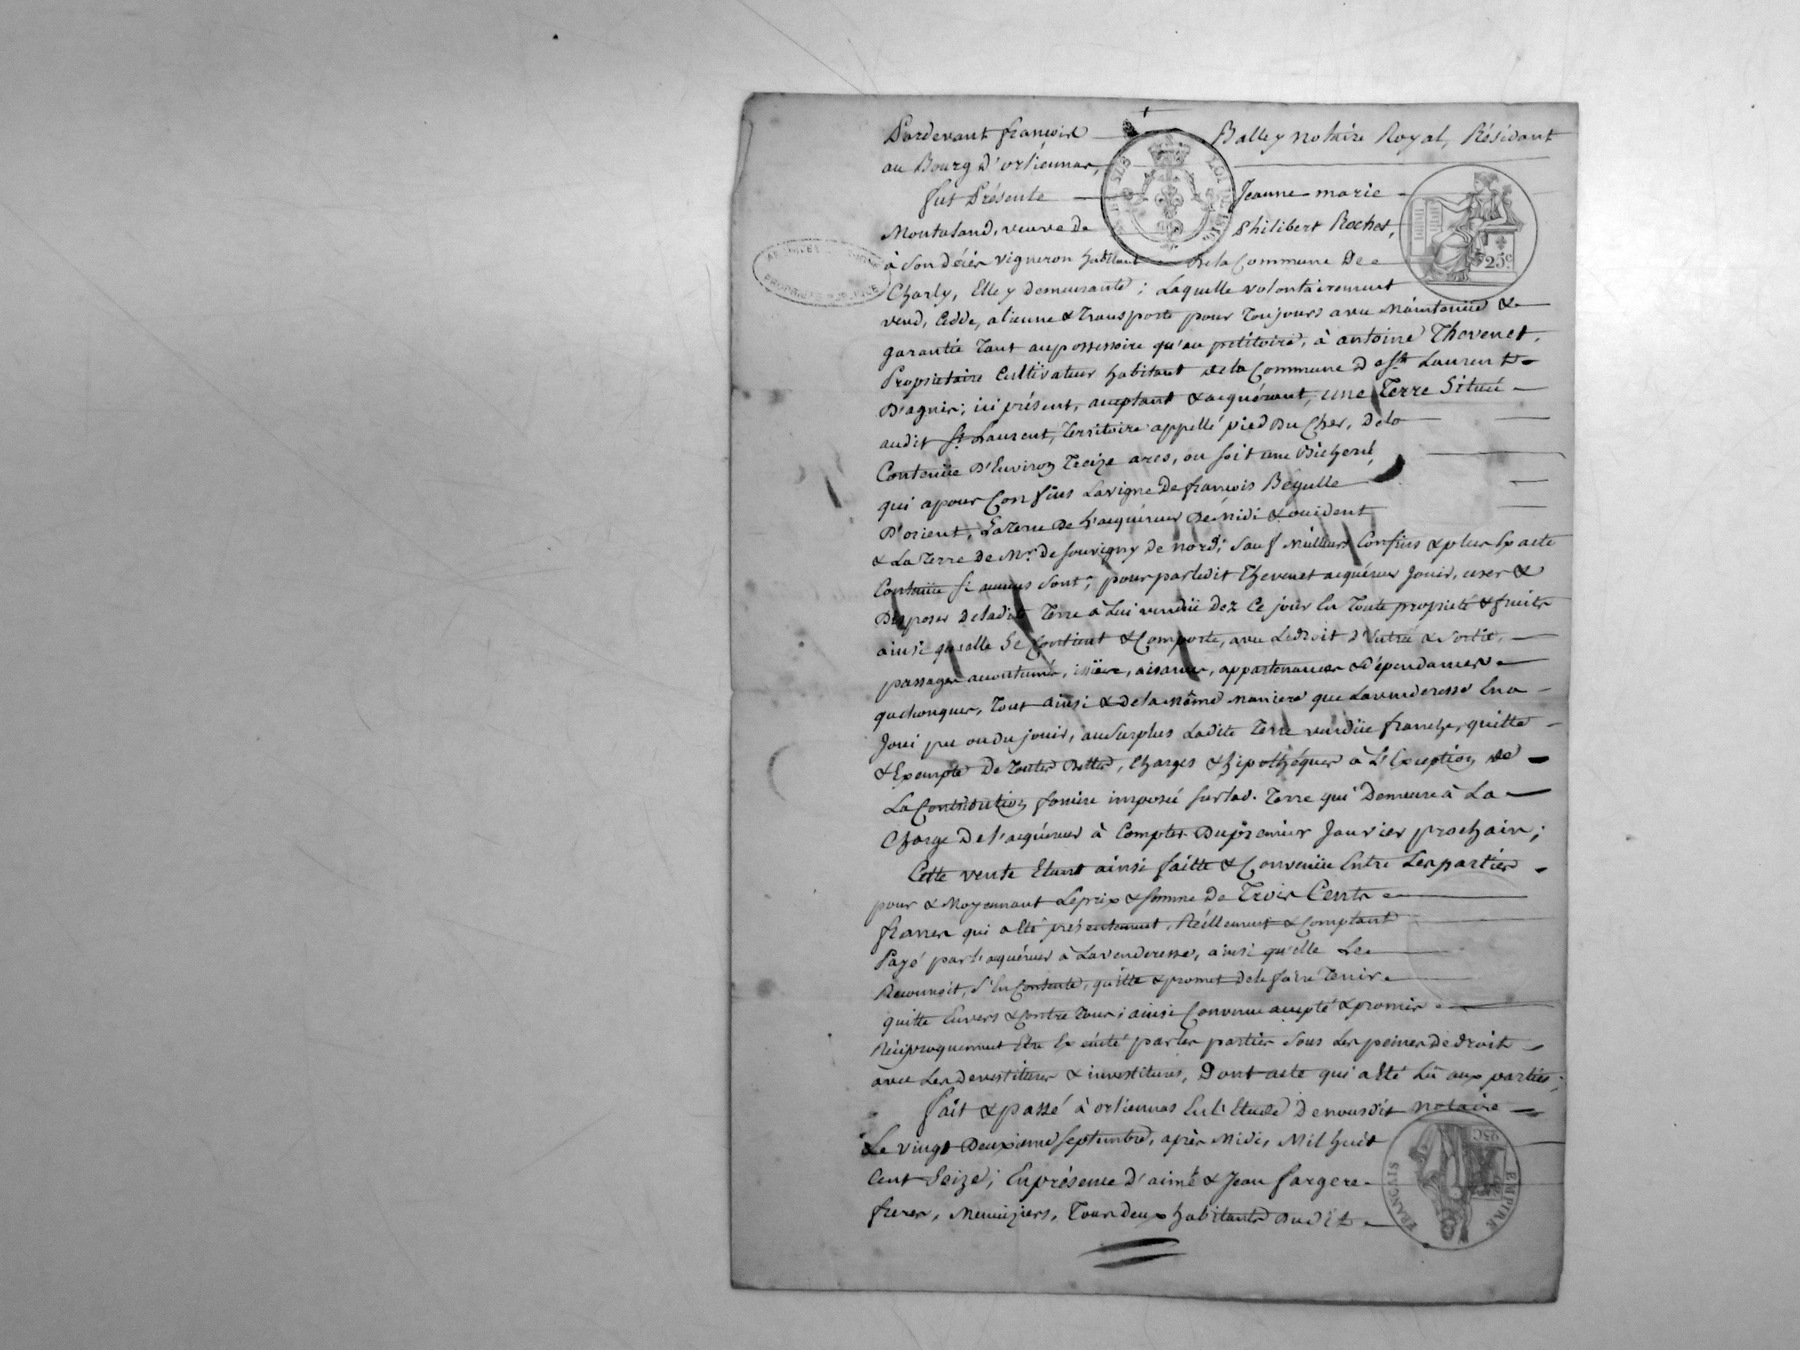 Pardevant françois Balley notaire Royal, Résidant
au Bourg d'orliennas,
fut Présente Jeanne-marie
Montaland, veuve de Philibert Rochet,
à son décès vigneron habitant de la Commune De
Charly, Elle y demeurante; Laquelle volontairement
vend, Cedde, alienne & Transporte pour Toujours avec Maintenüe &
garantie Tant au possessoire qu'au petitoire, à antoine Thevenet,
Propriétaire Cultivateur habitant de la Commune de St Laurent
D'agnis; ici présent, acceptant & acquérant, une Terre Située
audit St Laurent, Territoire appellé pied Du Cher, de la
Contenüe D'Environ Treize ares, ou soit une Bicherée,
qui a pour Confins La vigne De françois Béyulle
D'orient, La Terre De L'acquéreur De Midi & occident
& La Terre de Mr. de Souvigny de nord; Sauf Meilleurs Confins & plus Exacte
Contenüe si aucuns sont; pour par ledit Thevenet acquéreur Jouir, user &
Disposer de ladite Terre à Lui vendüe dez Ce jour En Toute propriété & fruits
ainsi qu'elle Se Contient & Comporte, avec Le droit D'Entrée & Sortie,
passages accoutumés, issües, aisances, appartenances & Dépendances
quelconques, Tout ainsi & de la même maniere que La venderesse En a
Joui pu ou du jouir, au Surplus Ladite Terre vendüe franche, quitte
& Exempte De Toutes Dettes, Charges & hipothéques à L'Exception de
La Contribution fonciere imposée sur lad. Terre qui Demeure à La
Charge De l'acquéreur à Compter Du premier Janvier prochain;
Cette vente Etant ainsi faitte & Convenüe Entre Les parties
pour & Moyennant Le prix & somme de Trois Cents
francs qui a Eté présentement, Réellement & Comptant
Payé par l'acquéreur à La venderesse, ainsi qu'elle Le
Reconnoit, S'En Contente, quitte & promet de le faire Tenir
quitte Envers & Contre Tous; ainsi Convenu accepté & promis
Réciproquement Etre Exécuté par les parties Sous Les peines de droit
avec Les devestitures & investitures, Dont acte qui a Eté Lu aux parties;
fait & passé à orliennas En L'Etude De nousdit notaire
Le vingt Deuxieme Septembre, après Midi, Mil huit
Cent Seize; En présence d'aimé & Jean fargere
freres, Menuiziers, Tous deux habitants Dudit
25c
EMPIRE FRANÇAIS
25C